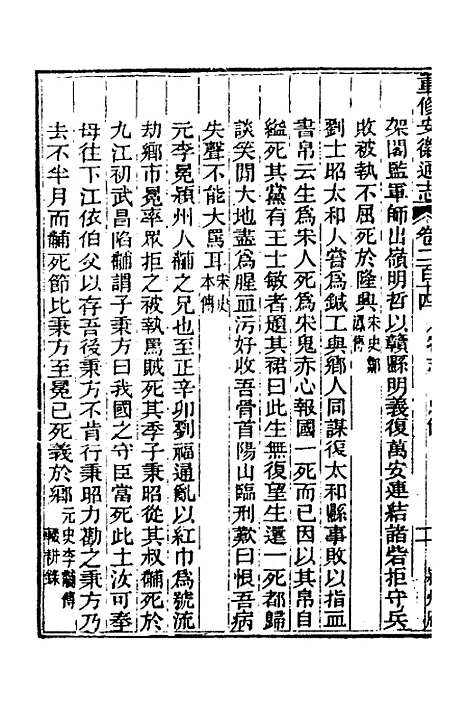 重修安徽通志 卷二百十四
架閣監軍師出嶺明哲以贛縣明義復萬安連結諸砦拒守兵
敗被執不屈死於隆興宋史鄒㵯傳
劉士昭太和人嘗爲鍼工與鄉人同謀復太和縣事敗以指血
書帛云生爲宋人死爲宋鬼赤心報國一死而已因以其帛自
縊死其黨有王士敏者題其裾曰此生無復望生還一死都歸
談笑間大地盡爲腥血污好收吾骨首陽山臨刑歎曰恨吾病
失聲不能大罵耳宋史本傳
元李冕潁州人黼之兄也至正辛卯劉福通亂以紅巾爲號流
劫鄉市冕率眾拒之被執罵賊死其季子秉昭從其叔黼死於
九江初武昌陷黼謂子秉方曰我國之守臣當死此土汝可奉
母往下江依伯父以存吾後秉方不肯行秉昭力勸之秉方乃
去不半月而黼死節比秉方至冕已死義於鄉元史李黼傳輟耕錄